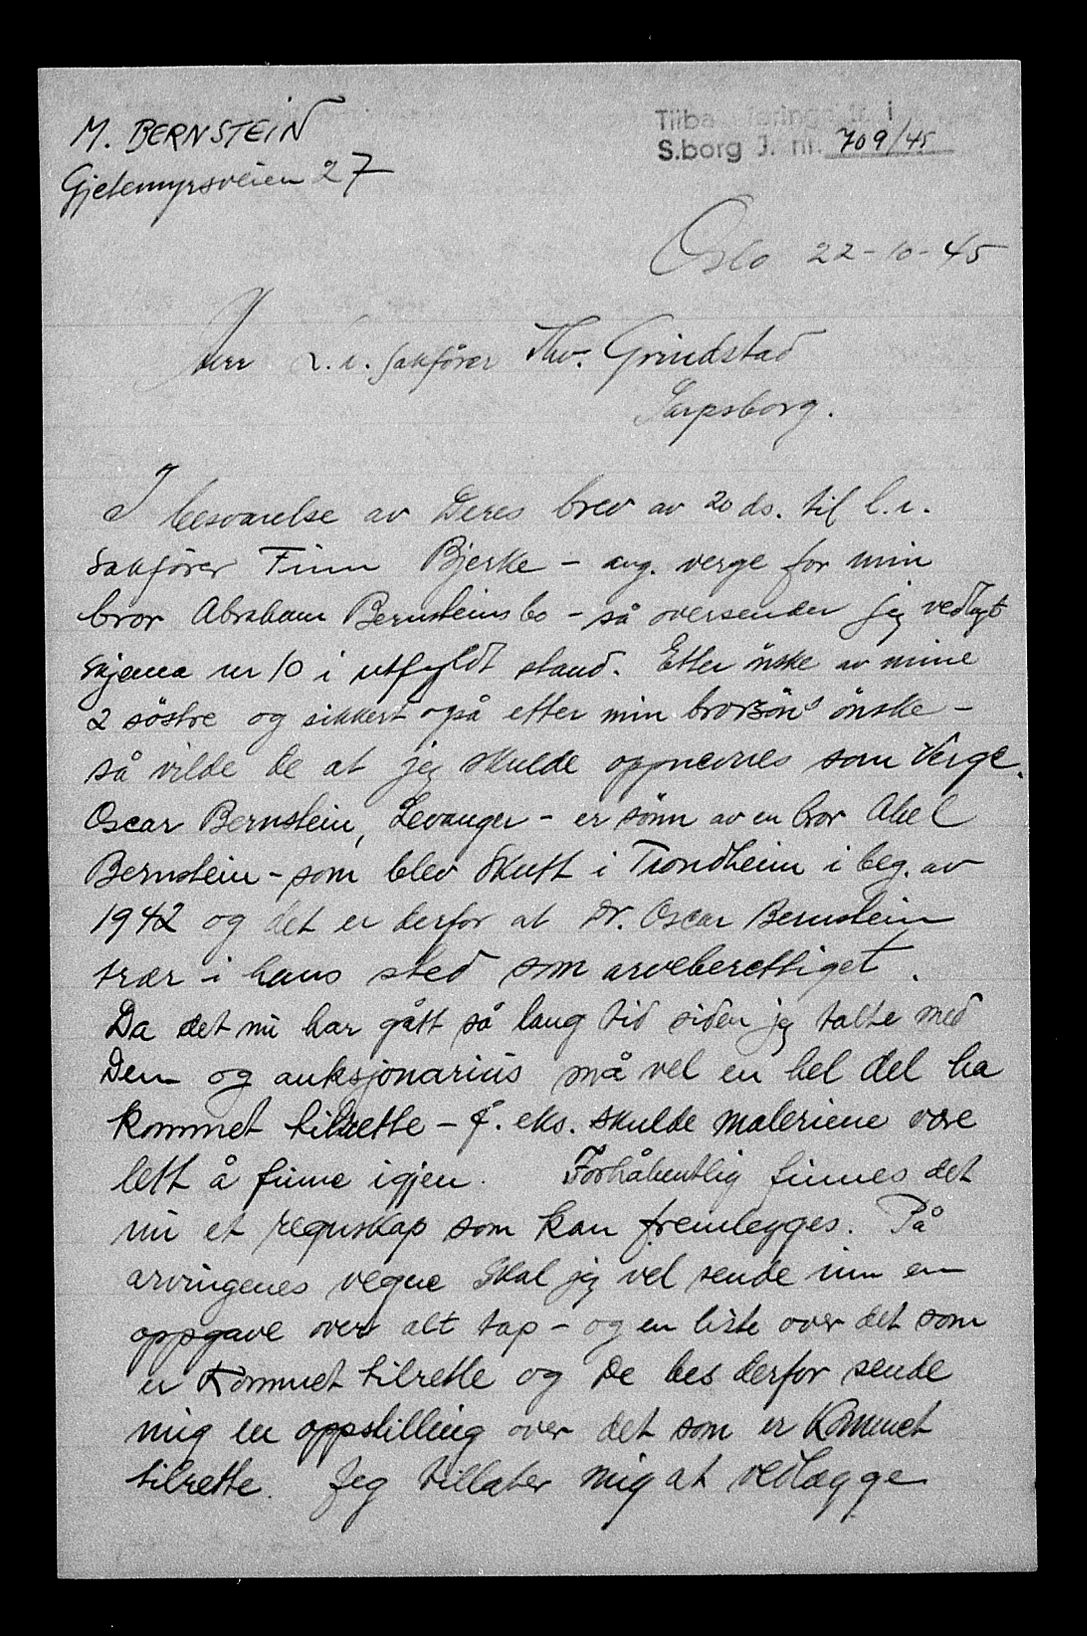 M. BERNSTEIN
Gjetemyrsveien 27
Tilba føringsk. i
S.borg J. nr. 709/45
Oslo 22-10-45
Herr L.r. sakfører Thv. Grindstad
Sarpsborg.
I besvarelse av Deres brev av 20 ds. til l.r.
sakfører Finn Bjerke – ang. verge for min
bror Abraham Bernsteins bo – så oversender jeg vedlagt
skjema nr 10 i utfyldt stand. Etter önske av mine
2 söstre og sikkert også efter min brorsöns önske –
så vilde de at jeg skulde oppnevnes som Verge.
Oscar Bernstein, Levanger – er sönn av en bror Abel
Bernstein – som blev skutt i Trondheim i beg. av
1942 og det er derfor at Dr. Oscar Bernstein
trær i hans sted som arveberettiget.
Da det nu har gått så lang tid siden jeg talte med
Dem og auksjonarius må vel en hel del ha
kommet tilrette – f. eks. skulde maleriene være
lett å finne igjen. Forhåbentlig finnes det
nu et regnskap som kan fremlegges. På
arvingenes vegne skal jeg vel sende inn en
oppgave over alt tap – og en liste over det som
er kommet tilrette og De bes derfor sende
mig en oppstilling over det som er kommet
tilrette. Jeg tillater mig at vedlægge